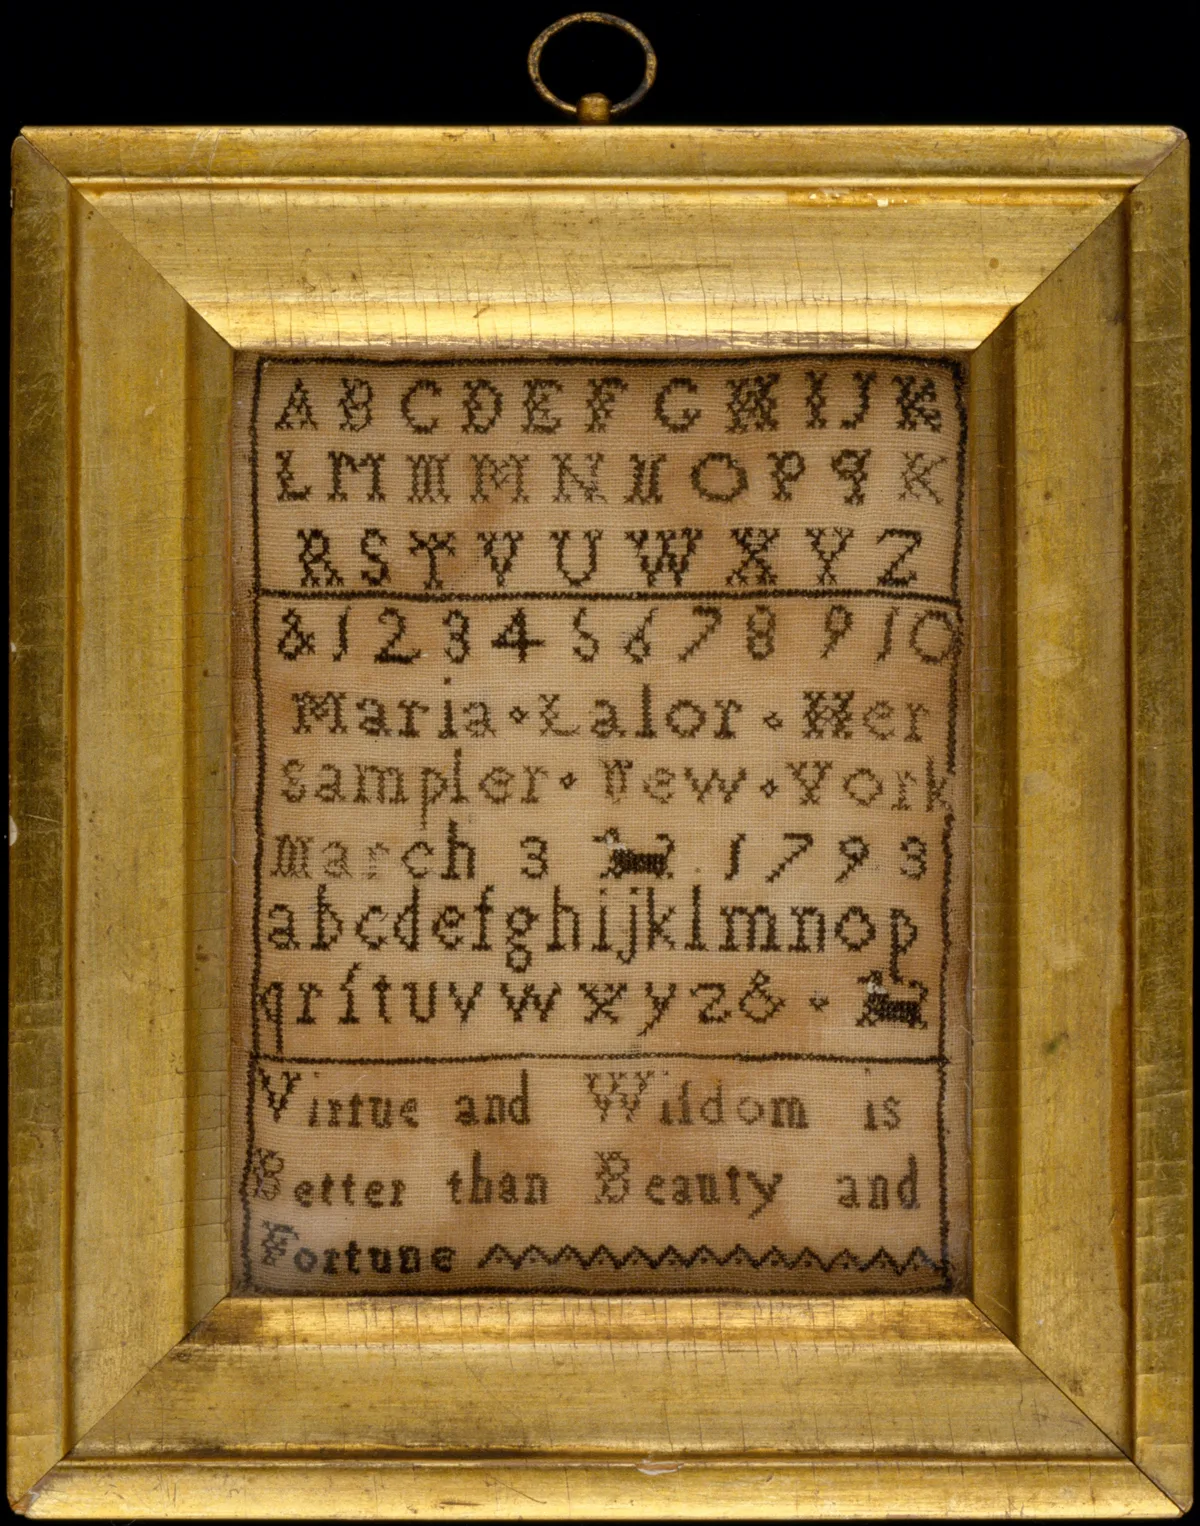 A B C D E F G H I J K
L M M M N N O P Q K
R S T V U W X Y Z
& 1 2 3 4 5 6 7 8 9 10
Maria · Lalor · Her
sampler · New · York
march 3 1793
abcdefghijklmnop
qrſtuvwxyz& ·
Virtue and Wiſdom is
Better than Beauty and
Fortune